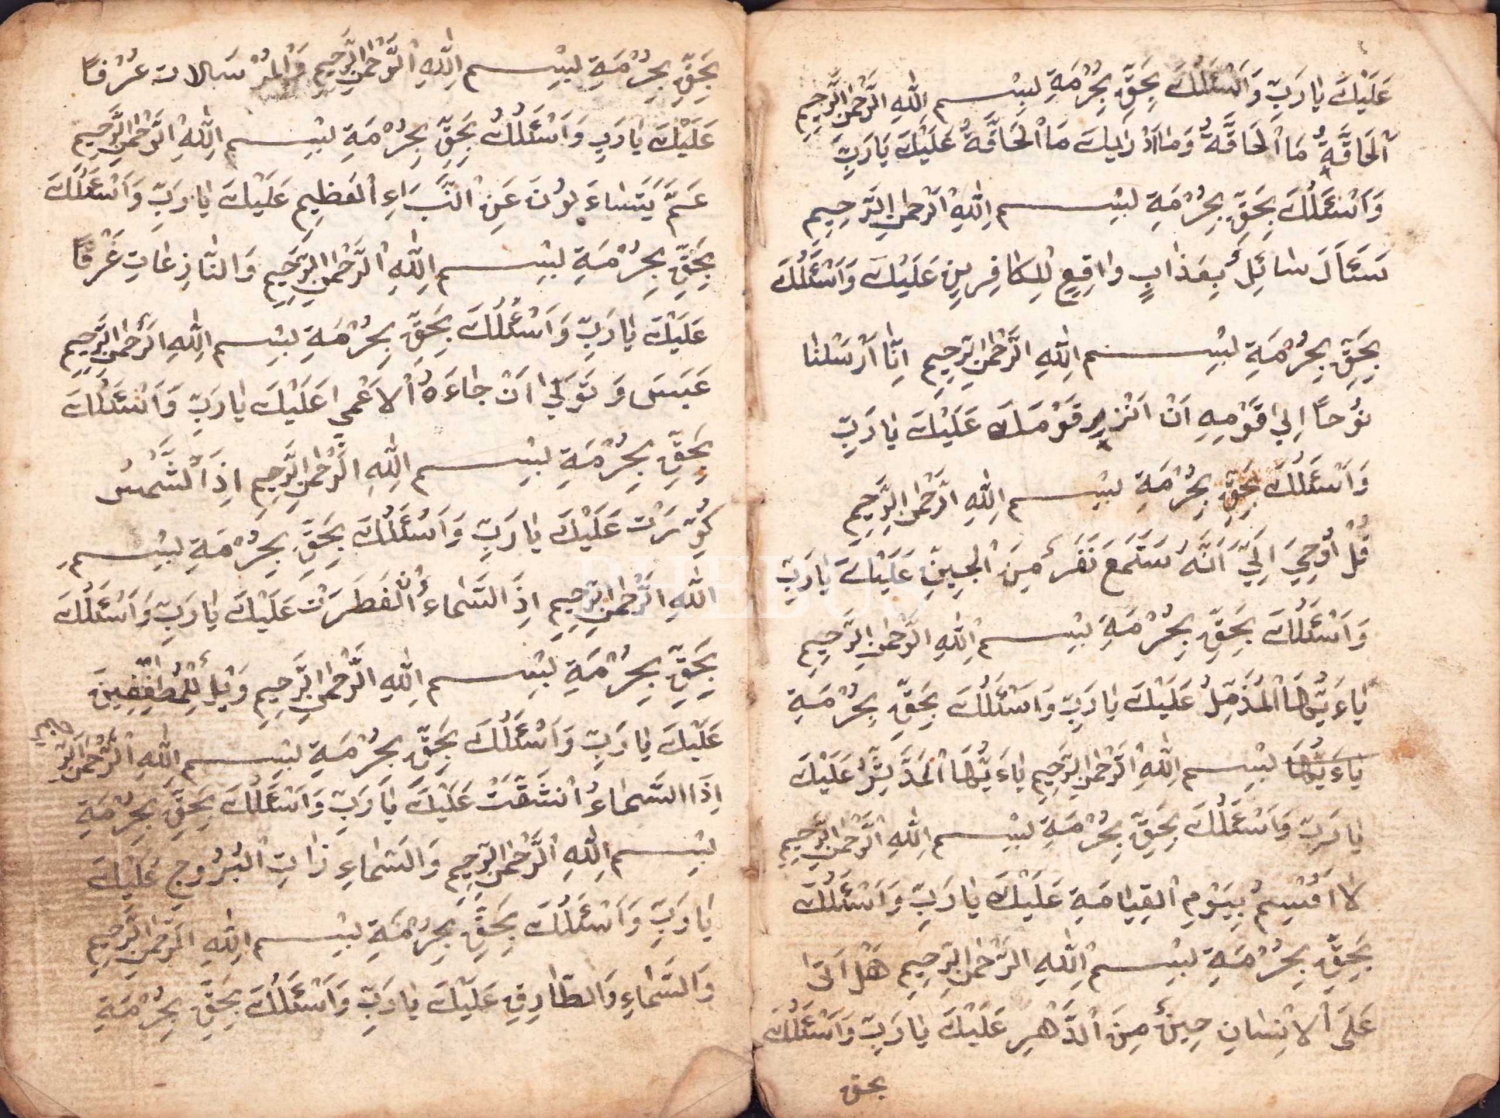 عَلَيْكَ يَا رَبِّ وَاَسْئَلُكَ بِحَقِّ بِحُرْمَةِ بِسْمِ اللّٰهِ الرَّحْمٰنِ الرَّحِيمِ
اَلْحَاقَّةُ مَا الْحَاقَّةُ وَمَا اَدْرٰيكَ مَا الْحَاقَّةُ عَلَيْكَ يَا رَبِّ
وَاَسْئَلُكَ بِحَقِّ بِحُرْمَةِ بِسْمِ اللّٰهِ الرَّحْمٰنِ الرَّحِيمِ
سَئَاَلَ سَائِلٌ بِعَذَابٍ وَاقِعٍ لِلْكَافِرِينَ عَلَيْكَ وَاَسْئَلُكَ
بِحَقِّ بِحُرْمَةِ بِسْمِ اللّٰهِ الرَّحْمٰنِ الرَّحِيمِ اِنَّا اَرْسَلْنَا
نُوحًا اِلٰى قَوْمِهِ اَنْ اَنْزِرْ قَوْمَكَ عَلَيْكَ يَا رَبِّ
وَاَسْئَلُكَ بِحَقِّ بِحُرْمَةِ بِسْمِ اللّٰهِ الرَّحْمٰنِ الرَّحِيمِ
قُلْ اُوحِيَ اِلَيَّ اَنَّهُ سْتَمَعَ نَفَرٌ مِنَ الْجِنِّ عَلَيْكَ يَا رَبِّ
وَاَسْئَلُكَ بِحَقِّ بِحُرْمَةِ بِسْمِ اللّٰهِ الرَّحْمٰنِ الرَّحِيمِ
يَاءَيُّهَا الْمُزَّمِّلُ عَلَيْكَ يَا رَبِّ وَاَسْئَلُكَ بِحَقِّ بِحُرْمَةِ
يَاءَيُّهَا بِسْمِ اللّٰهِ الرَّحْمٰنِ الرَّحِيمِ يَاءَيُّهَا الْمُدَّثِّرُ عَلَيْكَ
يَا رَبِّ وَاَسْئَلُكَ بِحَقِّ بِحُرْمَةِ بِسْمِ اللّٰهِ الرَّحْمٰنِ الرَّحِيمِ
لَا اُقْسِمُ بِيَوْمِ الْقِيَامَةِ عَلَيْكَ يَا رَبِّ وَاَسْئَلُكَ
بِحَقِّ بِحُرْمَةِ بِسْمِ اللّٰهِ الرَّحْمٰنِ الرَّحِيمِ هَلْ اَتٰى
عَلَى الْاِنْسَانِ حِينٌ مِنَ الدَّهْرِ عَلَيْكَ يَا رَبِّ وَاَسْئَلُكَ
بحق
بِحَقِّ بِحُرْمَةِ بِسْمِ اللّٰهِ الرَّحْمٰنِ الرَّحِيمِ وَالْمُرْسَلَاتِ عُرْفًا
عَلَيْكَ يَا رَبِّ وَاَسْئَلُكَ بِحَقِّ بِحُرْمَةِ بِسْمِ اللّٰهِ الرَّحْمٰنِ الرَّحِيمِ
عَمَّ يَتَسَاءَلُونَ عَنِ النَّبَاءِ الْعَظِيمِ عَلَيْكَ يَا رَبِّ وَاَسْئَلُكَ
بِحَقِّ بِحُرْمَةِ بِسْمِ اللّٰهِ الرَّحْمٰنِ الرَّحِيمِ وَالنَّازِعَاتِ غَرْقًا
عَلَيْكَ يَا رَبِّ وَاَسْئَلُكَ بِحَقِّ بِحُرْمَةِ بِسْمِ اللّٰهِ الرَّحْمٰنِ الرَّحِيمِ
عَبَسَ وَتَوَلّٰى اَنْ جَاءَهُ الْاَعْمٰى عَلَيْكَ يَا رَبِّ وَاَسْئَلُكَ
بِحَقِّ بِحُرْمَةِ بِسْمِ اللّٰهِ الرَّحْمٰنِ الرَّحِيمِ اِذَ الشَّمْسُ
كُوِّرَتْ عَلَيْكَ يَا رَبِّ وَاَسْئَلُكَ بِحَقِّ بِحُرْمَةِ بِسْمِ
اللّٰهِ الرَّحْمٰنِ الرَّحِيمِ اِذَ السَّمَاءُ انْفَطَرَتْ عَلَيْكَ يَا رَبِّ وَاَسْئَلُكَ
بِحَقِّ بِحُرْمَةِ بِسْمِ اللّٰهِ الرَّحْمٰنِ الرَّحِيمِ وَيْلٌ لِلْمُطَفِّفِينَ
عَلَيْكَ يَا رَبِّ وَاَسْئَلُكَ بِحَقِّ بِحُرْمَةِ بِسْمِ اللّٰهِ الرَّحْمٰنِ الرَّحِيمِ
اِذَا السَّمَاءُ انْشَقَّتْ عَلَيْكَ يَا رَبِّ وَاَسْئَلُكَ بِحَقِّ بِحُرْمَةِ
بِسْمِ اللّٰهِ الرَّحْمٰنِ الرَّحِيمِ وَالسَّمَاءِ ذَاتِ الْبُرُوجِ عَلَيْكَ
يَا رَبِّ وَاَسْئَلُكَ بِحَقِّ بِحُرْمَةِ بِسْمِ اللّٰهِ الرَّحْمٰنِ الرَّحِيمِ
وَالسَّمَاءِ وَالطَّارِقِ عَلَيْكَ يَا رَبِّ وَاَسْئَلُكَ بِحَقِّ بِحُرْمَةِ